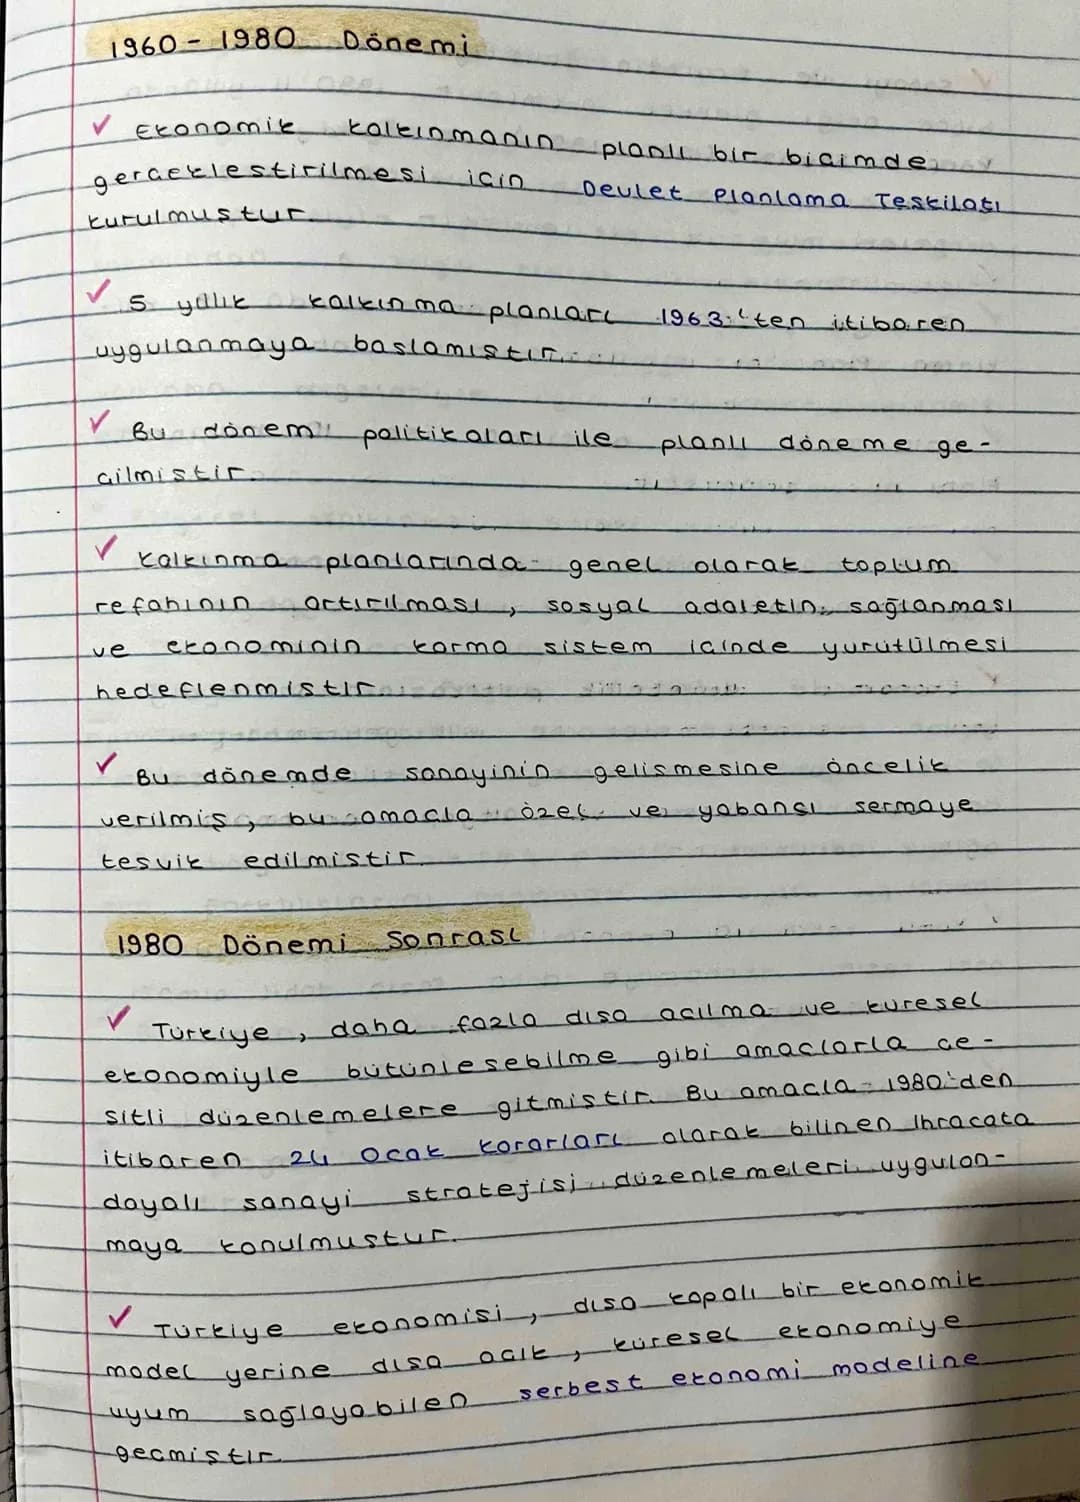 1960-1980 Dönemi
✓ Ekonomik kalkınmanın planlı bir biçimde
gerçekleştirilmesi için Devlet Planlama Teşkilatı
kurulmuştur.
✓ 5 yıllık kalkınma planları 1963'ten itibaren
uygulanmaya başlamıştır.
✓ Bu dönem politikaları ile planlı döneme ge-
çilmiştir.
✓ Kalkınma planlarında genel olarak toplum
refahının artırılması, sosyal adaletin sağlanması
ve ekonominin karma sistem içinde yürütülmesi
hedeflenmiştir.
✓ Bu dönemde sanayinin gelişmesine öncelik
verilmiş, bu amaçla özel ve yabancı sermaye
teşvik edilmiştir.
1980 Dönemi Sonrası
✓ Türkiye, daha fazla dışa açılma ve küresel
ekonomiyle bütünleşebilme gibi amaçlarla çe-
şitli düzenlemelere gitmiştir. Bu amaçla 1980'den
itibaren 24 Ocak Kararları olarak bilinen İhracata
dayalı sanayi stratejisi düzenlemeleri uygulan-
maya konulmuştur.
✓ Türkiye ekonomisi, dışa kapalı bir ekonomik
model yerine dışa açık, küresel ekonomiye
uyum sağlayabilen serbest ekonomi modeline
geçmiştir.